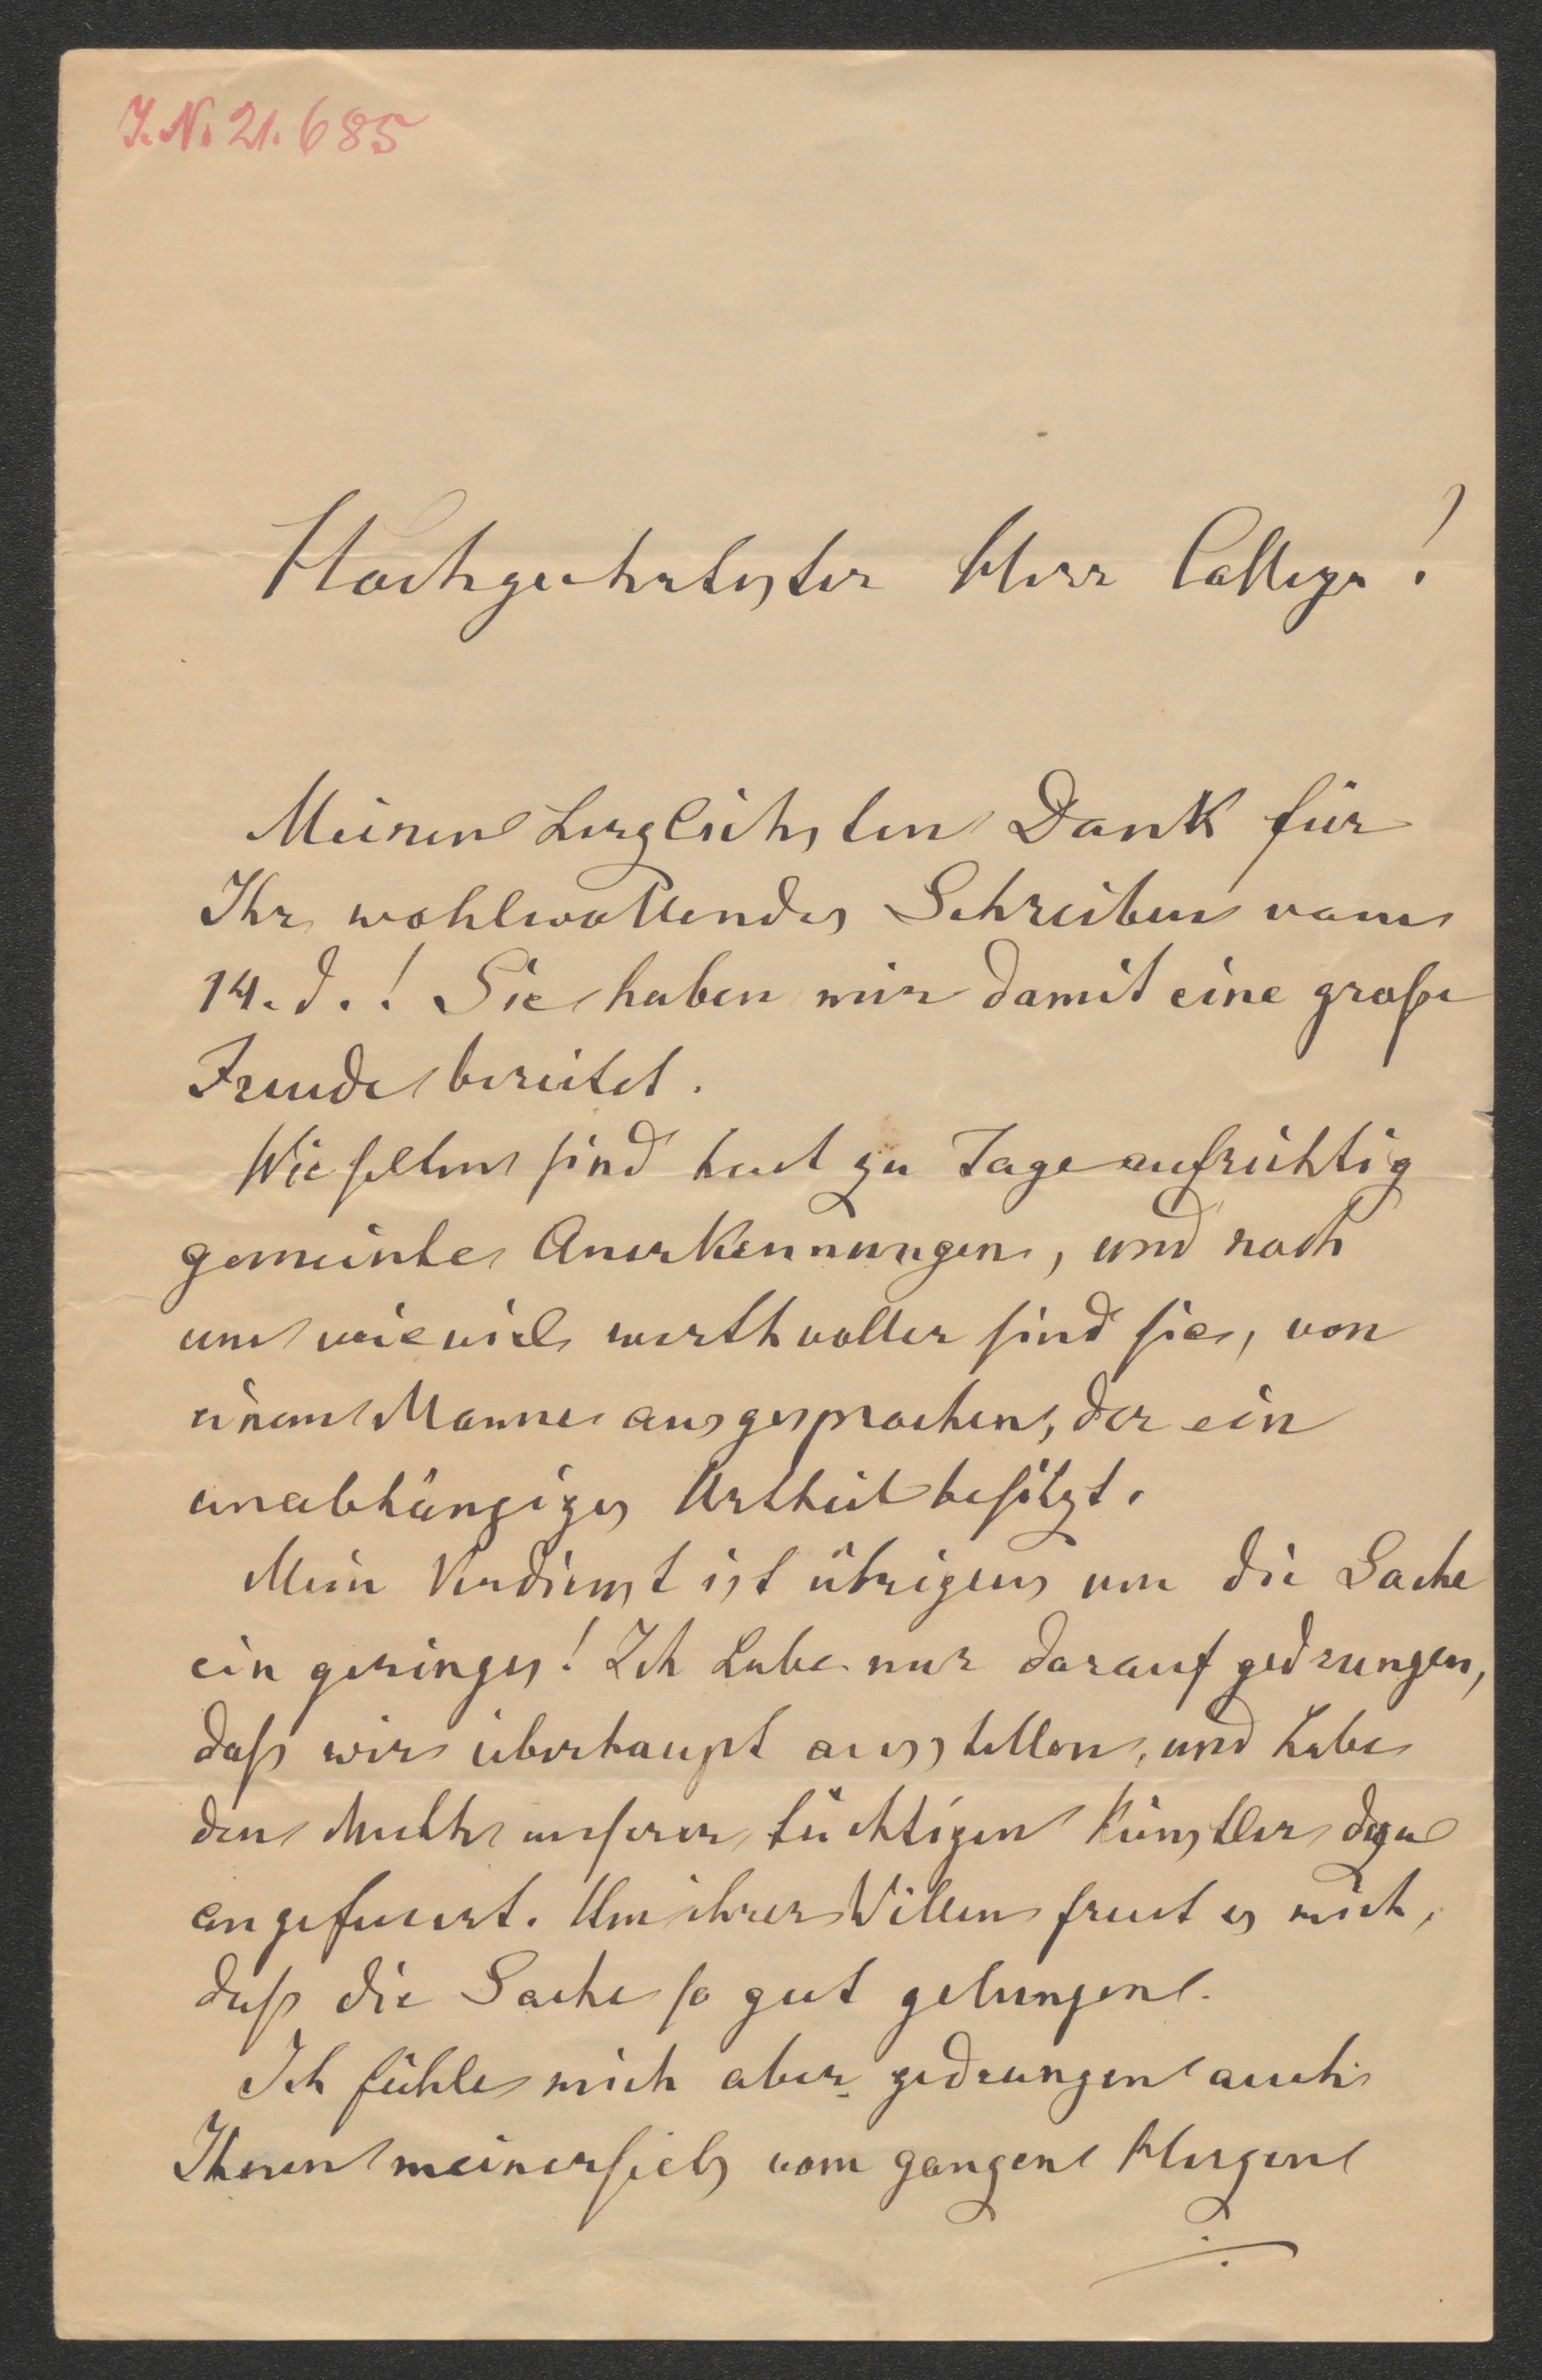 I. N. 21.685
Hochgeehrtester Herr College!
Meinen herzlichsten Dank für
Ihr wohlwollendes Schreiben vom
14. d.! Sie haben mir damit eine große
Freude bereitet.
Wie selten sind heut zu Tage aufrichtig
gemeinte Anerkennungen, und noch
um wie viel werthvoller sind sie, von
einem Manne ausgesprochen, der ein
unabhängiges Urtheil besitzt.
Mein Verdienst ist übrigens um die Sache
ein geringes! Ich habe nur darauf gedrungen,
daß wir überhaupt ausstellen, und habe
den Muth unserer tüchtigen Künstler dazu
angefeuert. Um ihrer Willen freut es mich,
daß die Sache so gut gelungen.
Ich fühle mich aber gedrungen auch
Ihnen meinerseits vom ganzen Herzen